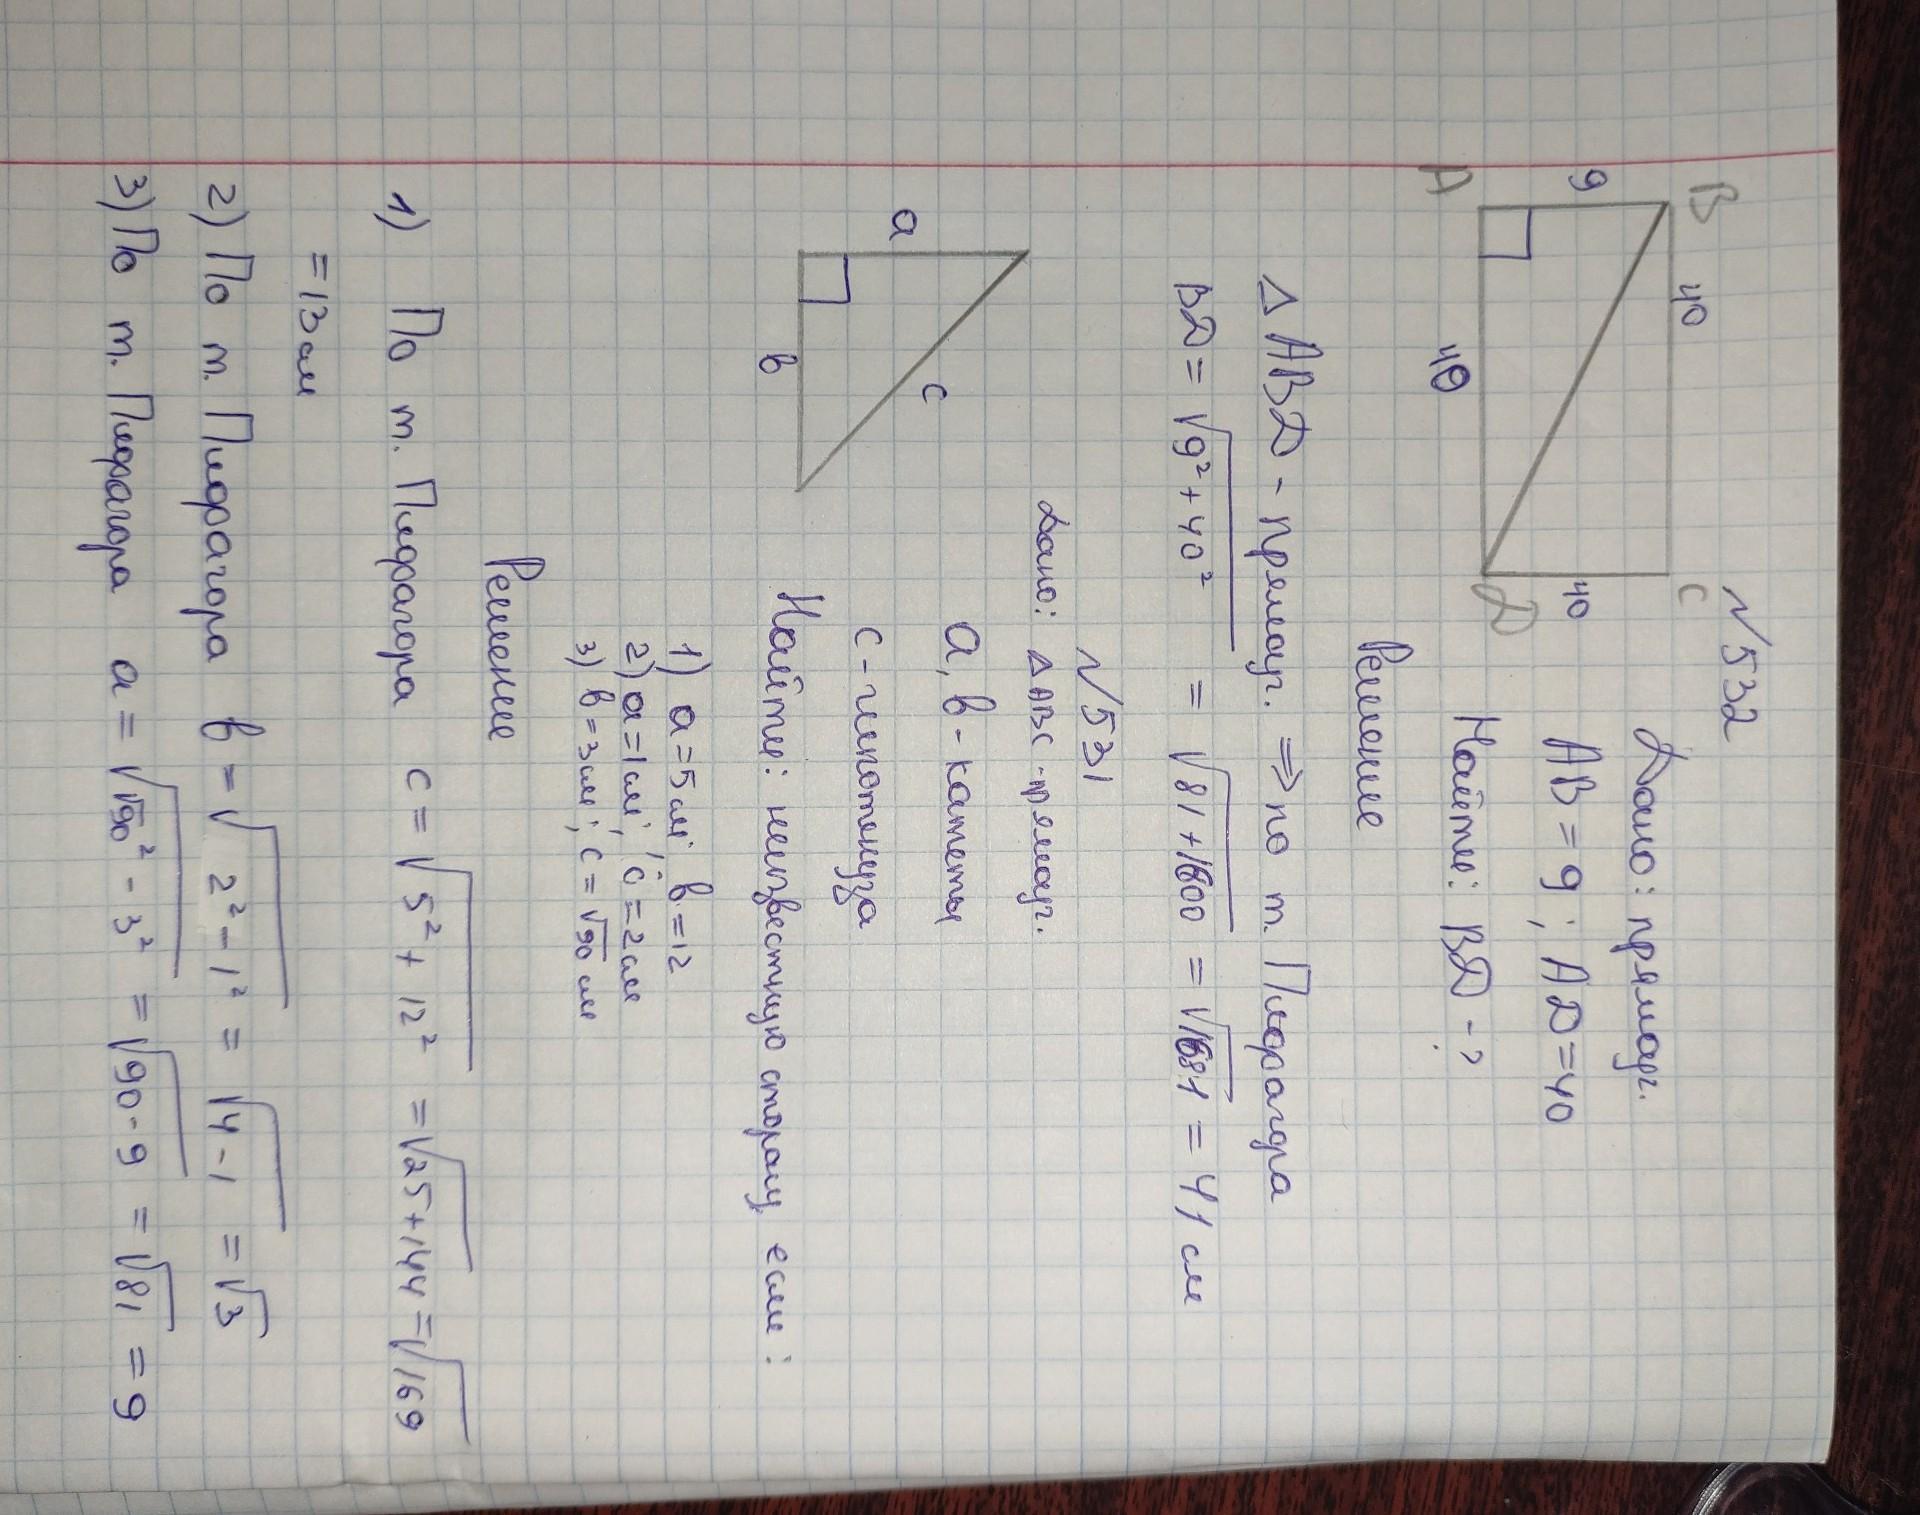 №532
B 40 C
9
40
A 40 D
Дано: прямоуг.
AB = 9 ; AD = 40
Найти: BD - ?
Решение
Δ ABD - прямоуг. ⇒ по т. Пифагора
BD = √9² + 40² = √81 + 1600 = √1681 = 41 см
№531
a
c
в
Дано: Δ ABC - прямоуг.
a, в - катеты
с - гипотенуза
Найти: неизвестную сторону, если :
1) a = 5 см; в = 12
2) a = 1 см; с = 2 см
3) в = 3 см; с = √90 см
Решение
1) По т. Пифагора с = √5² + 12² = √25 + 144 = √169
= 13 см
2) По т. Пифагора в = √2² - 1² = √4 - 1 = √3
3) По т. Пифагора a = √√90² - 3² = √90 - 9 = √81 = 9